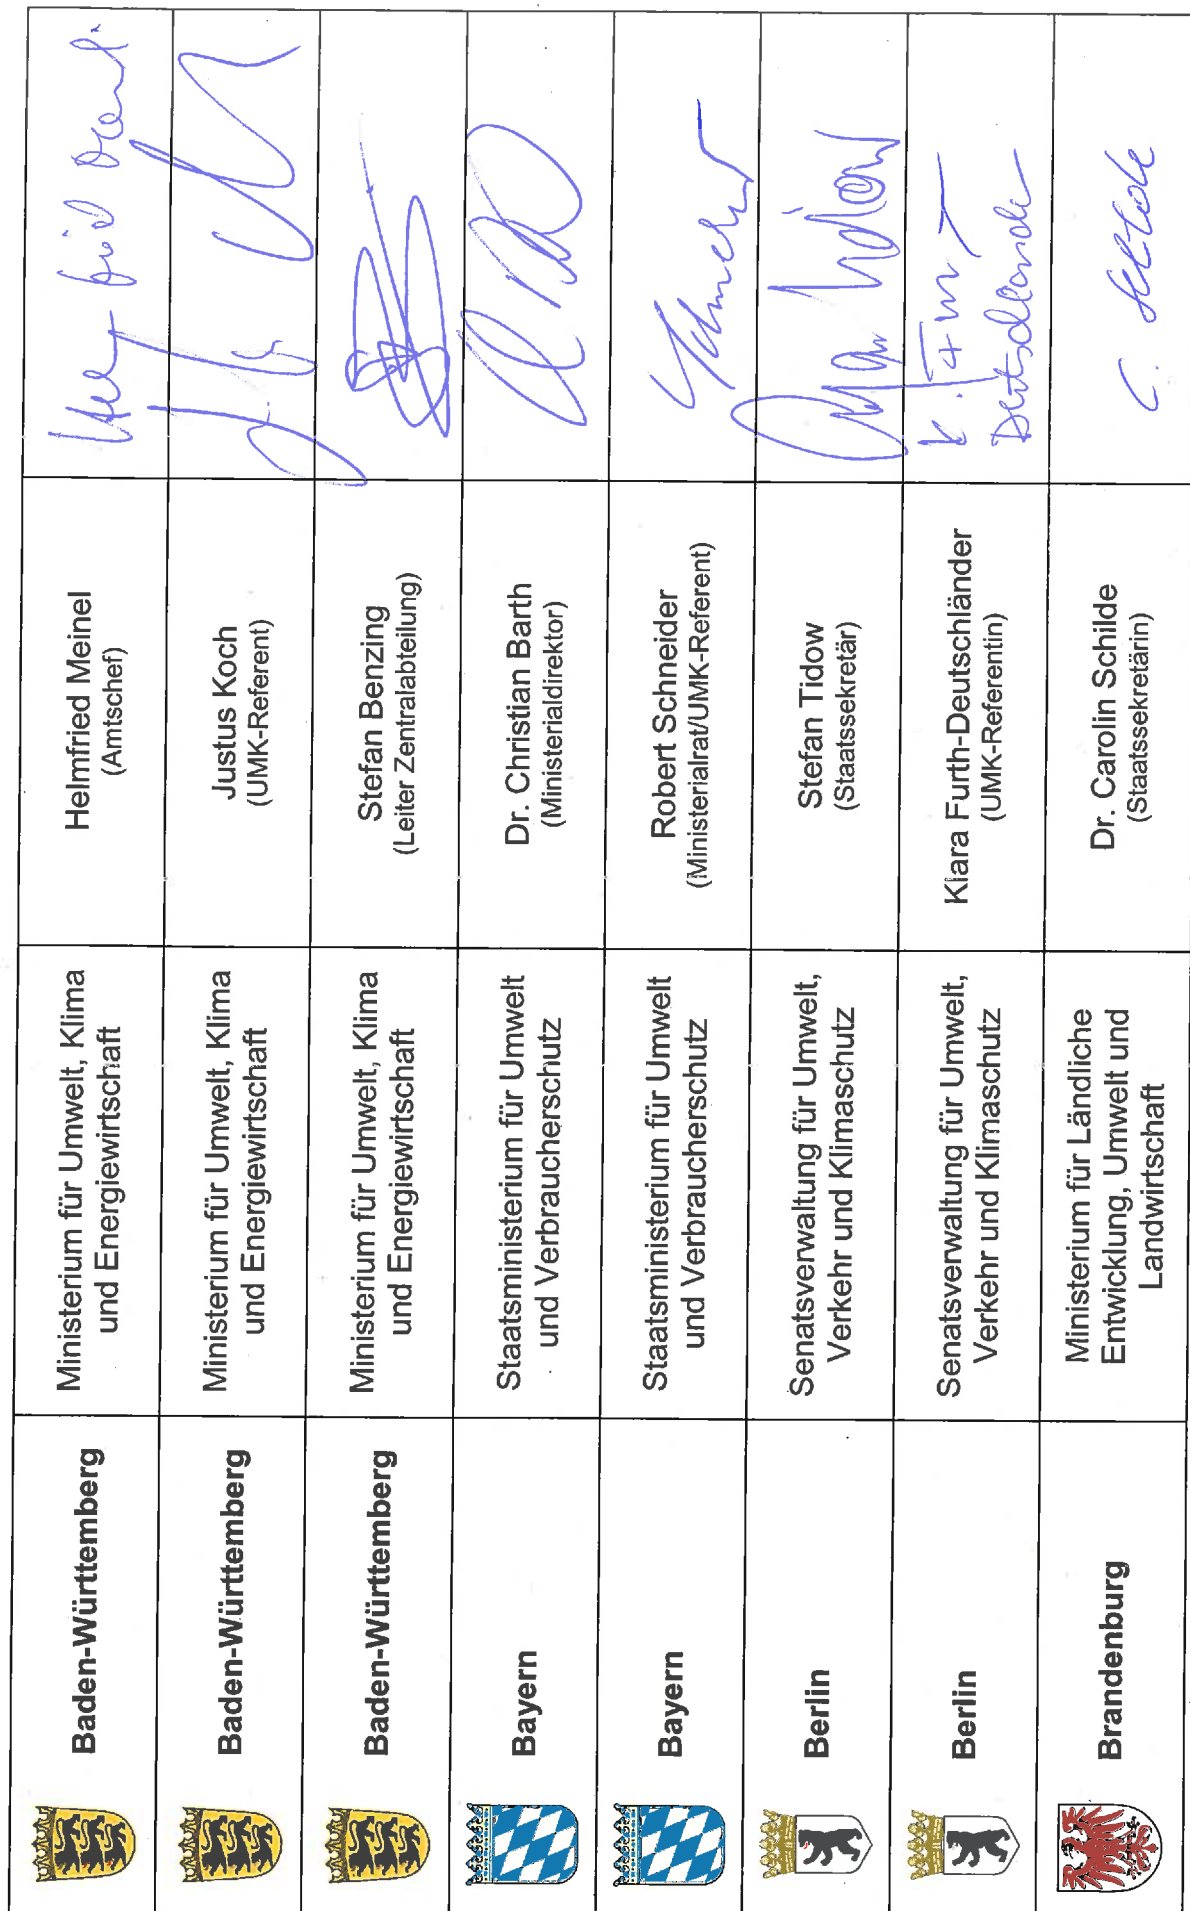 Baden-Württemberg
Ministerium für Umwelt, Klima
und Energiewirtschaft
Helmfried Meinel
(Amtschef)
Baden-Württemberg
Ministerium für Umwelt, Klima
und Energiewirtschaft
Justus Koch
(UMK-Referent)
Baden-Württemberg
Ministerium für Umwelt, Klima
und Energiewirtschaft
Stefan Benzing
(Leiter Zentralabteilung)
Bayern
Staatsministerium für Umwelt
und Verbraucherschutz
Dr. Christian Barth
(Ministerialdirektor)
Bayern
Staatsministerium für Umwelt
und Verbraucherschutz
Robert Schneider
(Ministerialrat/UMK-Referent)
Berlin
Senatsverwaltung für Umwelt,
Verkehr und Klimaschutz
Stefan Tidow
(Staatssekretär)
Berlin
Senatsverwaltung für Umwelt,
Verkehr und Klimaschutz
Klara Furth-Deutschländer
(UMK-Referentin)
Brandenburg
Ministerium für Ländliche
Entwicklung, Umwelt und
Landwirtschaft
Dr. Carolin Schilde
(Staatssekretärin)
C. Schilde